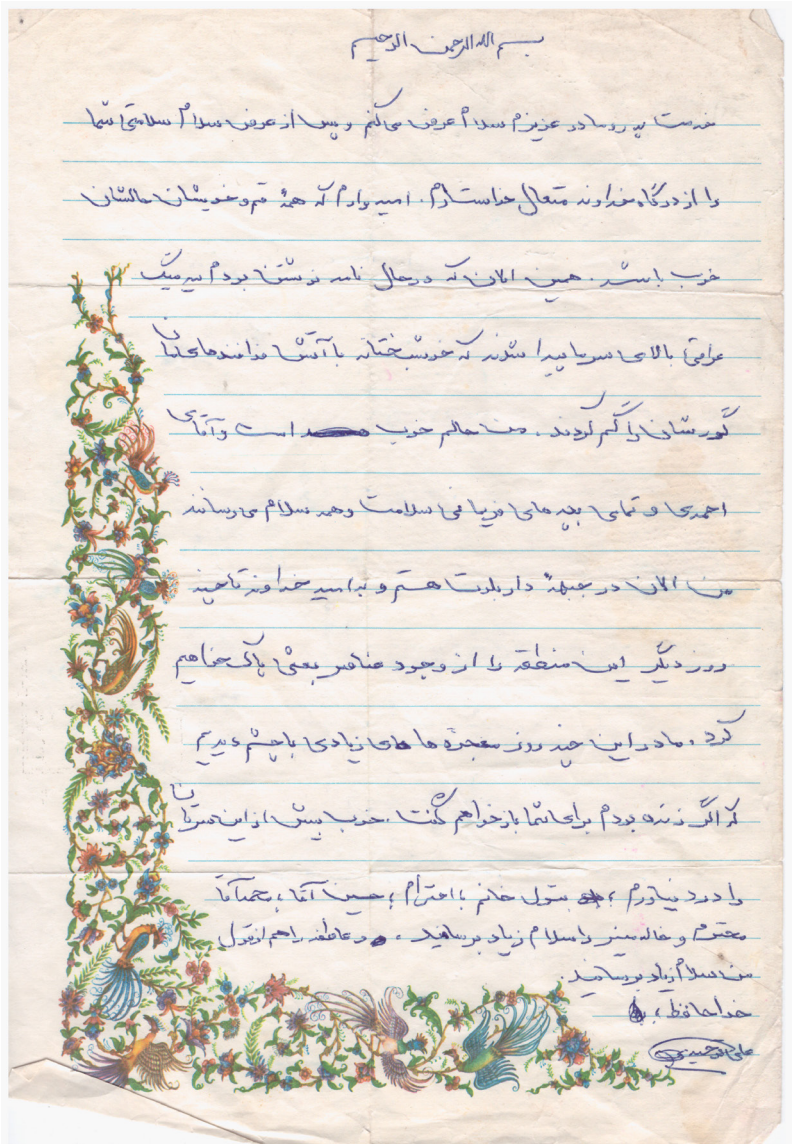 بسم الله الرحمن الرحیم
خدمت پدر و مادر عزیزم سلام عرض می‌کنم و پس از عرض سلام سلامتی شما
را از درگاه خداوند متعال خواستارم. امیدوارم که همهٔ قوم و خویشان حالشان
خوب باشد. همین الان که در حال نامه نوشتن بودم سه میگ
عراقی بالای سر ما پیدا شدند که خوشبختانه با آتش پدافندهای‌مان
گورشان را گم کردند. من حالم خوب است و آقای
احمدی و تمامی بچه‌های سلامت و همه سلام می‌رسانند
من الان در جبههٔ هستم و به امید خداوند تا چند
روز دیگر این منطقه را از وجود عناصر بعثی پاک خواهیم
کرد. ما در این چند روز معجزه‌های زیادی با چشم دیدیم
که اگر زنده بودم برای شما باز خواهم گفت. خوب بیش از این سرتان
را درد نیاورم، بتول خانم با احترام، حسین آقا، محمد آقا
محترم و خاله منیر را سلام زیاد برسانید. و عاطفه را هم از قول
من سلام زیاد برسانید.
خداحافظ،
علی